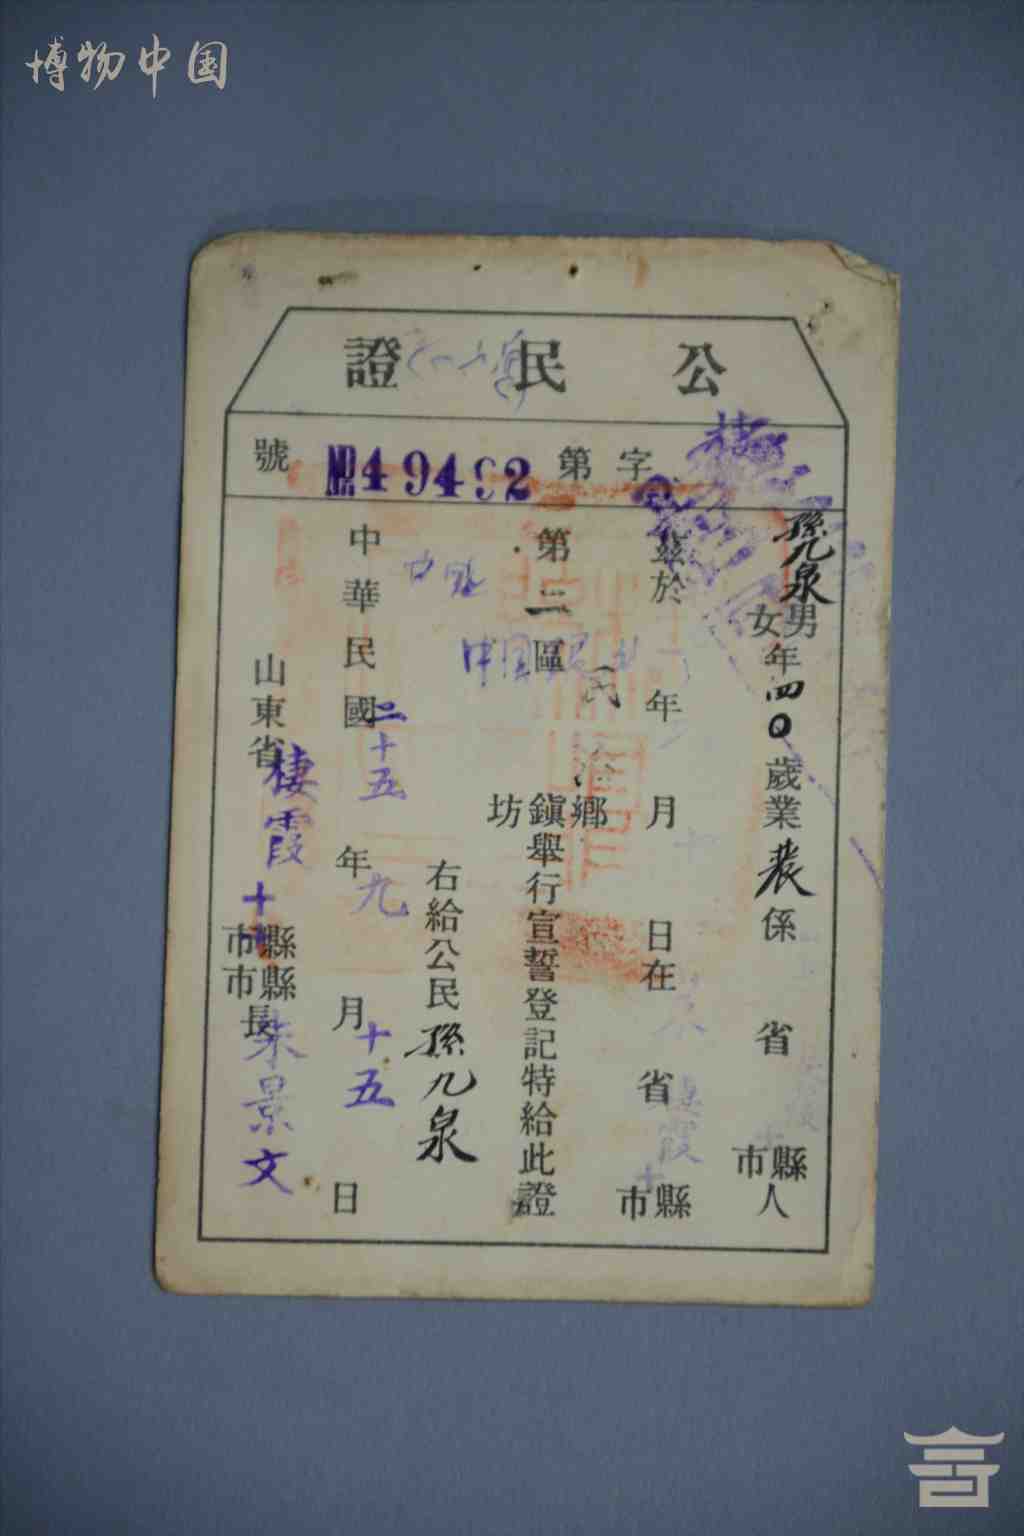 博物中国
公民證
字第№49492號
孫九泉
男女年四0歲業農係省縣市人
茲於年月日在省棲霞縣市
第二區民鄉鎮坊舉行宣誓登記特給此證
右給公民孫九泉
中華民國二十五年九月十五日
山東省棲霞縣市縣市長朱景文